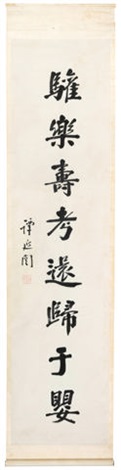 驩樂壽考還歸于嬰
譚延闓